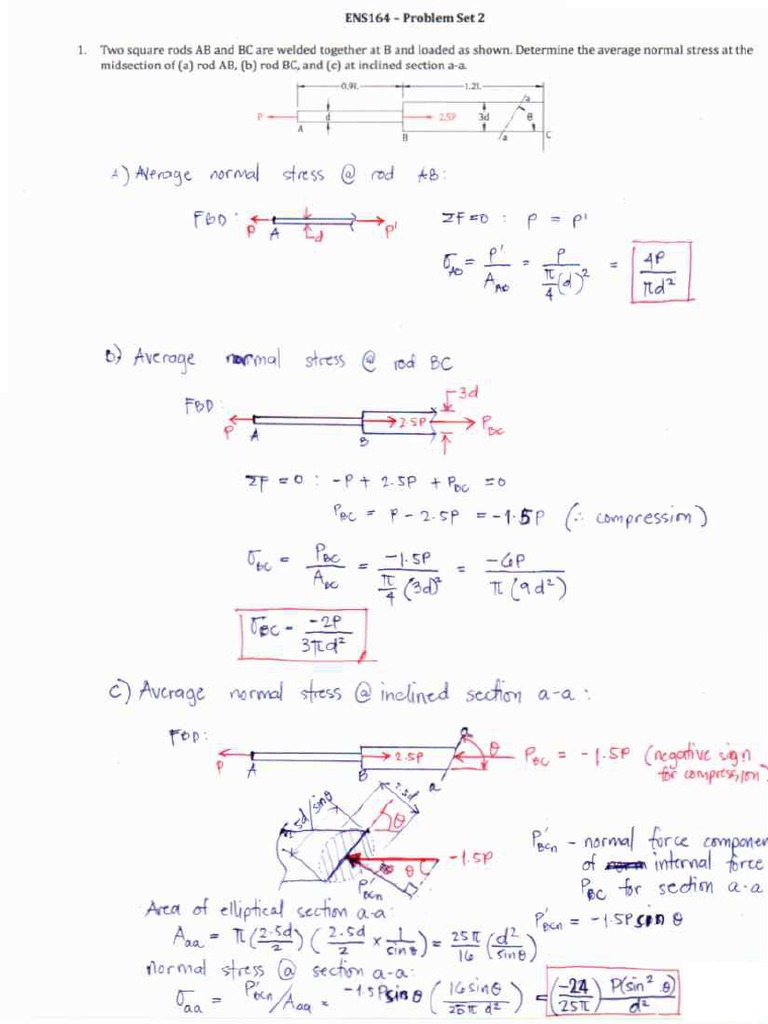 ENS164 – Problem Set 2
1. Two square rods AB and BC are welded together at B and loaded as shown. Determine the average normal stress at the
midsection of (a) rod AB, (b) rod BC, and (c) at inclined section a-a.
0.9L 1.2L
P d 2.5P 3d a θ
A B a C
A) Average normal stress @ rod AB:
FBD: P A d P' ΣF=0 : P = P'
σAB = P'/AAB = P/(π/4 (d)²) = 4P/πd²
B) Average normal stress @ rod BC
FBD: P A B 2.5P 3d PBC
ΣF = 0 : -P + 2.5P + PBC = 0
PBC = P - 2.5P = -1.5P (∴ compression)
σBC = PBC/ABC = -1.5P/(π/4 (3d)²) = -6P/(π(9d²))
σBC = -2P/3πd²
C) Average normal stress @ inclined section a-a:
FBD: P A B 2.5P a a θ PBC = -1.5P (negative sign
for compression)
2.5d/sinθ 2.5d θ
P'BCn θ -1.5P
P'BCn - normal force component
of internal force
PBC for section a-a
Area of elliptical section a-a: P'BCn = -1.5P sin θ
Aaa = π(2.5d/2)(2.5d/2 × 1/sinθ) = 25π/16 (d²/sinθ)
normal stress @ section a-a:
σaa = P'BCn/Aaa = -1.5P sinθ (16 sinθ/25π d²) = (-24/25π) P(sin² θ)/d²